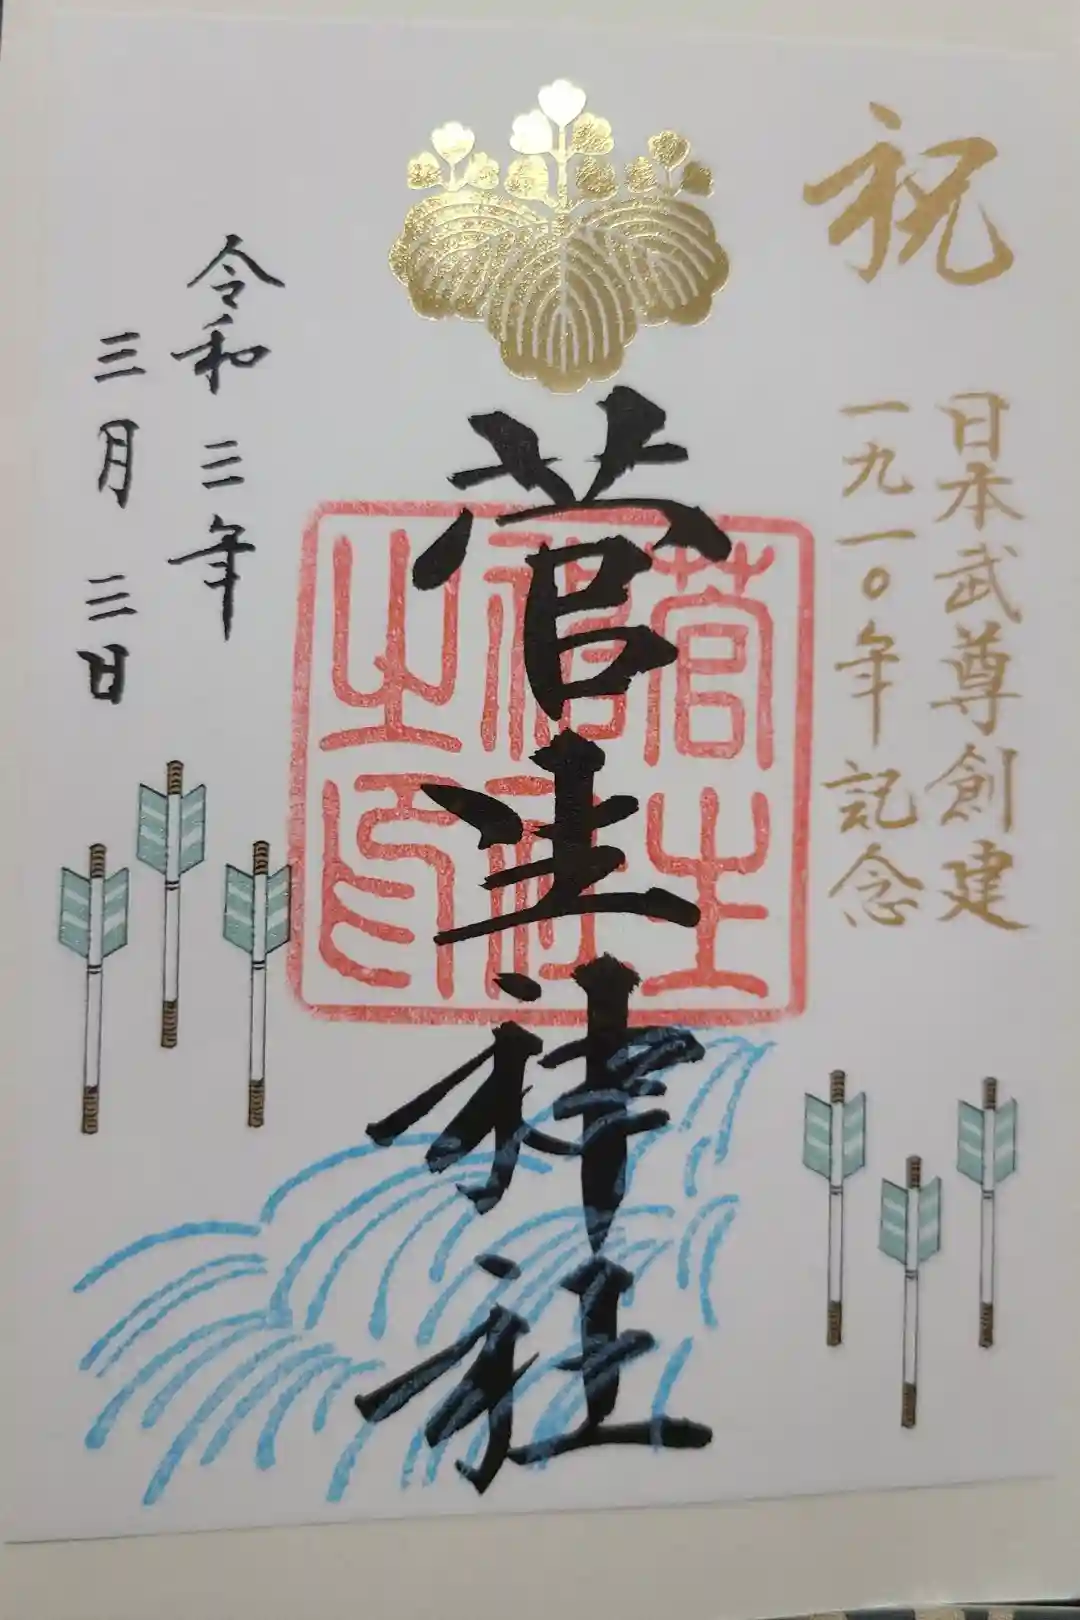 祝
日本武尊創建
一九一〇年記念
菅生神社
菅生
神社
之印
令和三年
三月三日